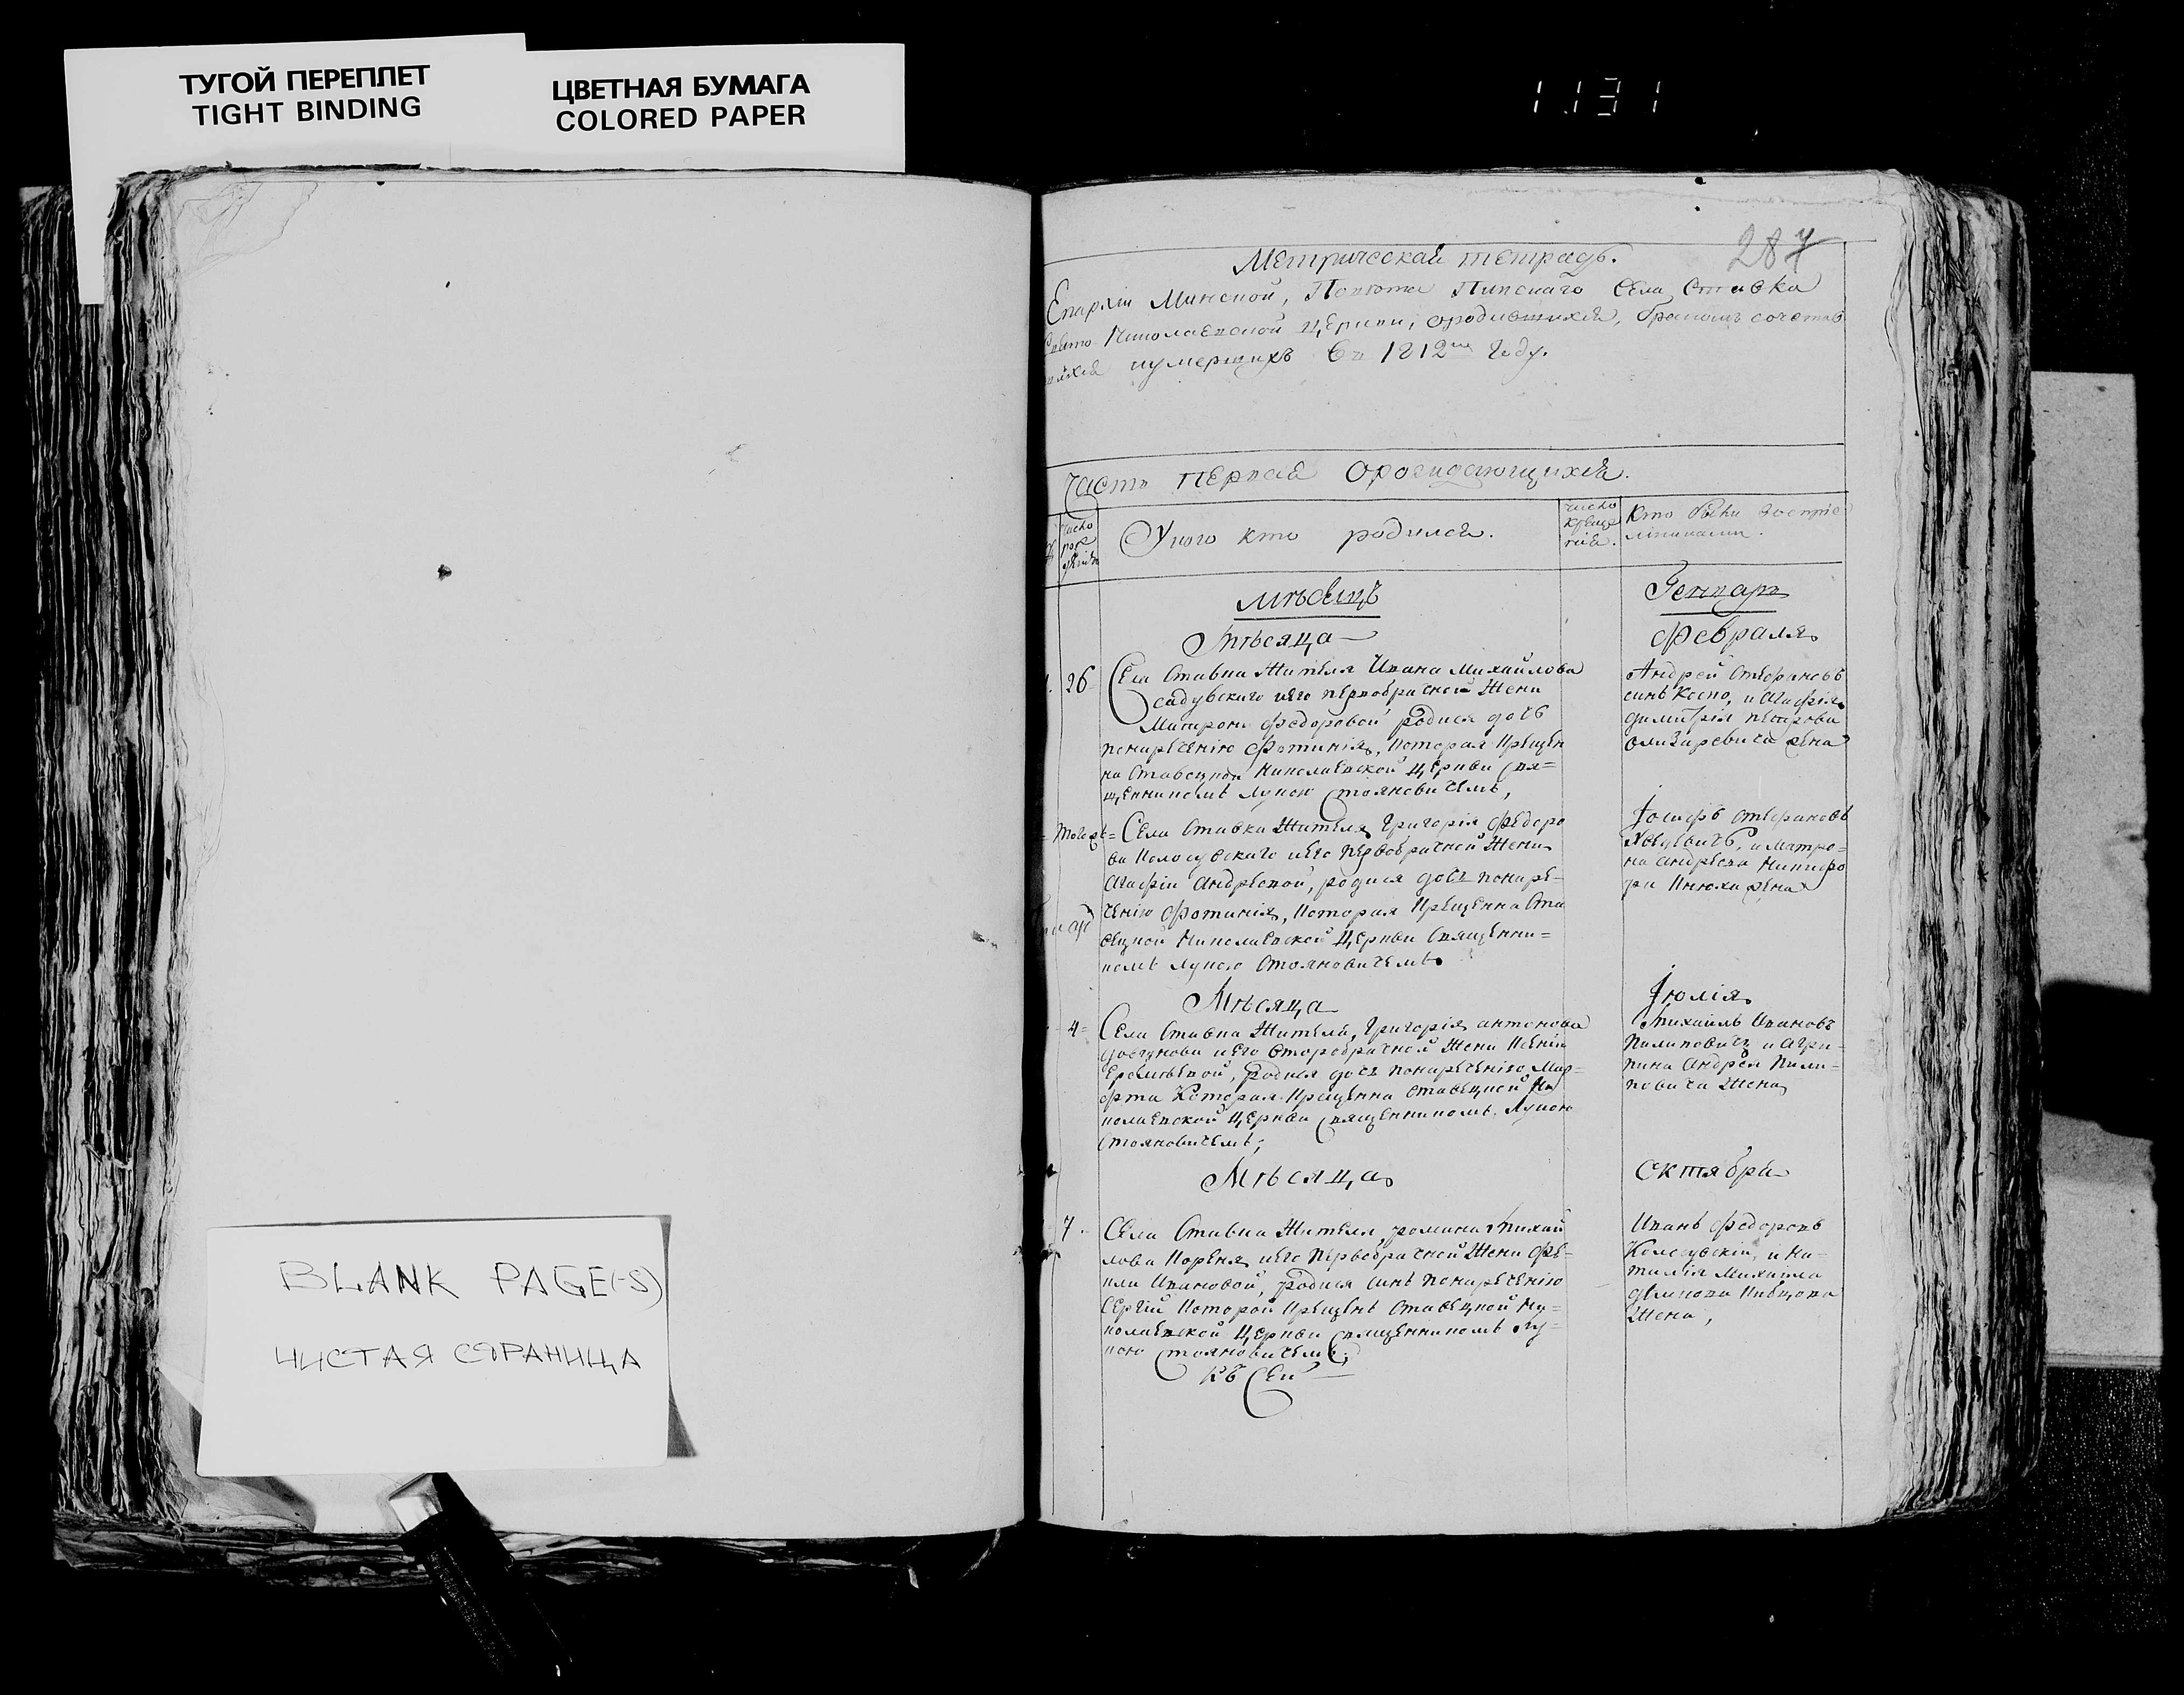 ТУГОЙ ПЕРЕПЛЕТ
TIGHT BINDING
ЦВЕТНАЯ БУМАГА
COLORED PAPER
1131
287
Метрическая тетрадь.
Епархіи Минской, Повѣта Пинскаго Села Ставка
Свято Николаевской Церкви, ородившихся, бракомъ сочетав
шихся иумершихъ въ 1812м году.
Часть первая орождающихся.
число рождения
Укого кто родился.
число крещения.
Кто были восприемниками.
Мѣсяцъ
Генваръ
Мѣсяца
Февраля
26
Села Ставка Жителя Ивана Михайлова
Садувского иего первобрачной Жени
Матрони Федоровой родися дочь
понаречению Фотиния, которая крещен
на Ставецкой Николаевской Церкви Свя=
щенникомъ Лукою Стояновичемъ,
Андрей Стефановъ
синъ и Агафія
Димитрія Петрова
Олизаревича жена
Тогожъ
Села Ставка Жителя Григорія Федоро
ва иего первобрачной Жени
Агафіи Андреевой, родися дочь понаре=
чению Фотиния, которая крещенна Ста
вецкой Николаевской Церкви Священни=
комъ Лукою Стояновичемъ
Іосифъ Стефановъ
и Матро=
на Андреева
жена
Мѣсяца
Іюлія
4
Села Ставка Жителя Григорія Антонова
иего второбрачной Жени Ксеніи
родися дочь понаречению Мар=
фта Которая крещенна Ставецкой Ни
колаевской Церкви Священникомъ Лукою
Стояновичемъ;
Михаилъ Ивановъ
Пилиповичъ и Агри=
пина Андрея Пили=
повича Жена
Мѣсяца
Октября
7
Села Ставка Жителя Романа Михай
лова Кореня иего первобрачной Жени Фе=
кли Ивановой, родися синъ понаречению
Сергій которой крещенъ Ставецкой Ни=
колаевской Церкви Священникомъ Лу=
кою Стояновичемъ;
Иванъ Федоровъ
и На=
талія Михаила
Жена,
Къ Сей
BLANK PAGE(-S)
ЧИСТАЯ СТРАНИЦА